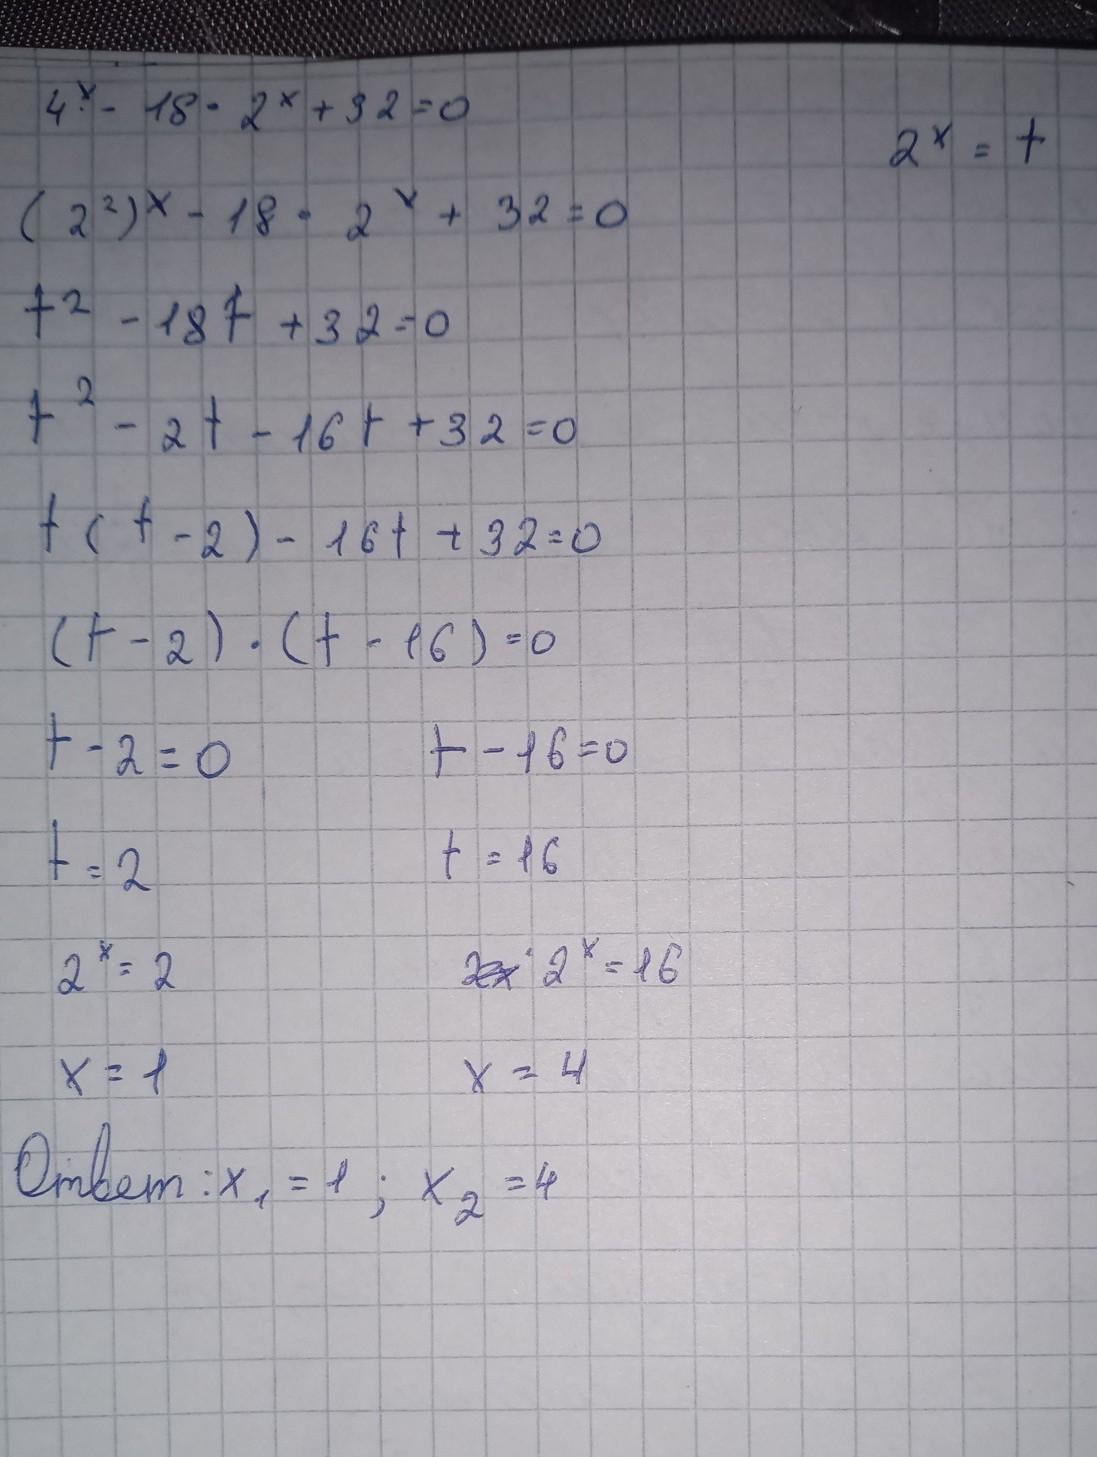 4ˣ - 18 · 2ˣ + 32 = 0
2ˣ = t
(2²)ˣ - 18 · 2ˣ + 32 = 0
t² - 18t + 32 = 0
t² - 2t - 16t + 32 = 0
t(t - 2) - 16t + 32 = 0
(t - 2) · (t - 16) = 0
t - 2 = 0 t - 16 = 0
t = 2 t = 16
2ˣ = 2 2ˣ = 16
x = 1 x = 4
Ответ: x₁ = 1; x₂ = 4